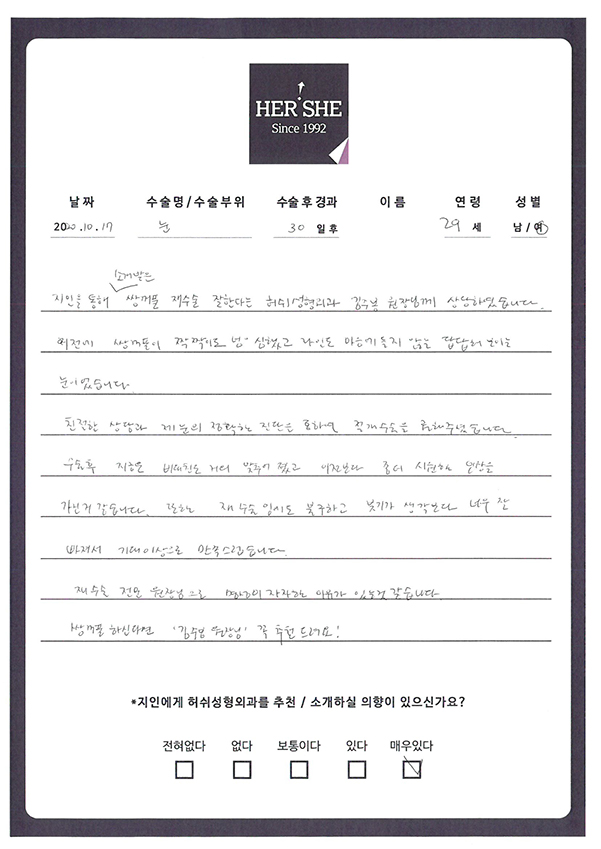 HER SHE
Since 1992
날짜 수술명/수술부위 수술 후 경과 이름 연령 성별
2020.10.17 눈 30 일 후 29 세 남/여
소개받고
지인을 통해 쌍꺼풀 재수술 잘한다는 허쉬성형외과 김수봉 원장님께 상담하였습니다.
예전에 쌍꺼풀이 짝짝이로 넘 심했고 라인도 마음에 들지 않을 답답해 보이는
눈이었습니다.
친절한 상담과 제 눈의 정확한 진단을 통하여 수술을 해주셨습니다.
수술후 지금은 비대칭도 거의 맞추어 졌고 이전보다 좀더 시원한 인상을
가진거 같습니다. 또한 재수술 임에도 불구하고 붓기가 생각보다 너무 잘
빠져서 기대이상으로 만족스럽습니다.
재수술 전문 원장님으로 명성이 자자하는 이유가 있는것 같습니다.
쌍꺼풀 하신다면 '김수봉 원장님' 꼭 추천 드려요!
*지인에게 허쉬성형외과를 추천 / 소개하실 의향이 있으신가요?
전혀없다 없다 보통이다 있다 매우있다